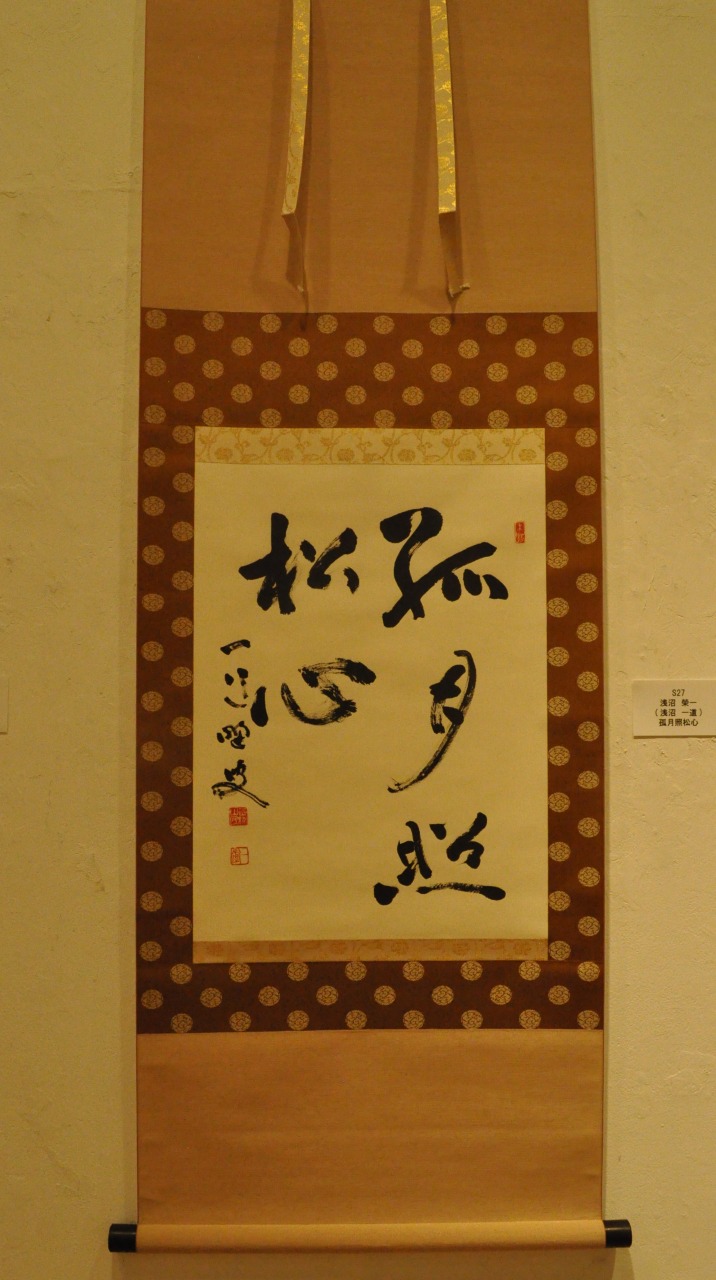 孤月照
松心
一道
S27
浅沼 榮一
(浅沼 一道)
孤月照松心